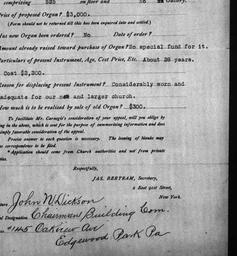 comprising 525 on floor and no in Gallery.
Price of proposed Organ? $3,000.
(Form should not be returned till this has been enquired into and settled.)
Has new Organ been ordered? No Date of order?
Amount already raised toward purchase of Organ? No special fund for it.
Particulars of present Instrument, Age, Cost Price, Etc. About 28 years.
Cost $2,200.
Reason for displacing present Instrument? Considerably worn and
inadequate for our new and larger church.
How much is to be realized by sale of old Organ? $300.
To facilitate Mr. Carnegie's consideration of your appeal, will you oblige by
filling in the above, which is sent for the purpose of summarizing information and does not
imply favorable consideration of the appeal.
Precise answer to each question is necessary. The leaving of blanks may
correspondence to be filed.
*Application should come from Church authorities and not from private
parties.
Respectfully,
JAS. BERTRAM, Secretary,
2 East 91st Street,
New York.
John W. Dickson
Official Designation. Chairman Building Com.
#145 Oakview Ave
Edgewood Park Pa